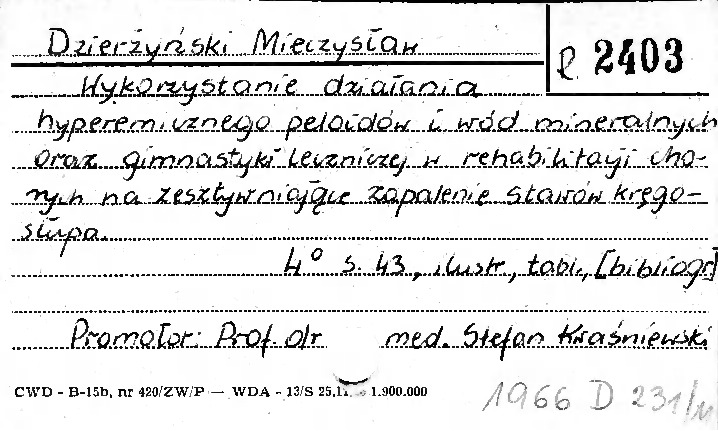 Dzierżyński Mieczysław
R 2403
Wykorzystanie działania
hyperemicznego peloidów i wód mineralnych
oraz gimnastyki leczniczej w rehabilitacji cho-
rych na zesztywniające zapalenie stawów kręgo-
słupa.
4° s. 43, ilustr., tabl., [bibliogr]
Promotor: Prof. dr med. Stefan Kraśniewski
CWD - B-15b, nr 420/ZW/P — WDA - 13/S 25,11. - 1.900.000
1966 D 231/